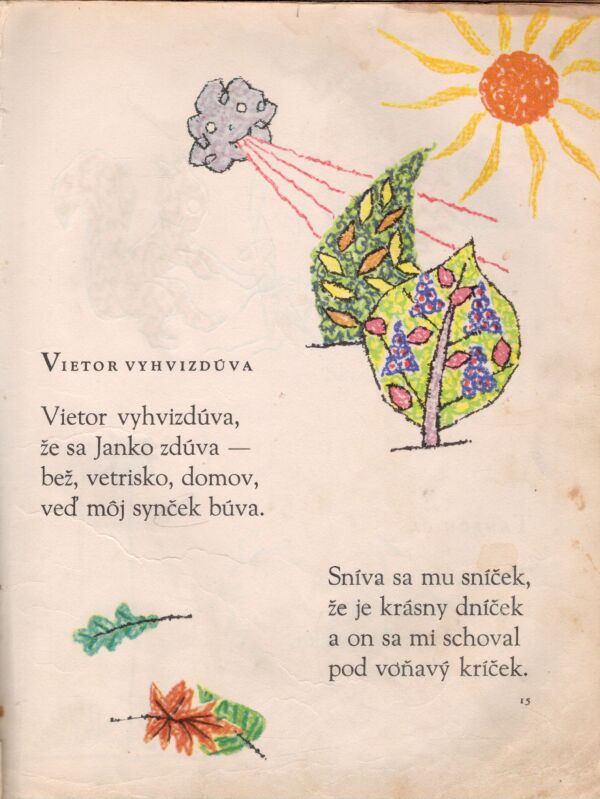 VIETOR VYHVIZDÚVA
Vietor vyhvizdúva,
že sa Janko zdúva —
bež, vetrisko, domov,
veď môj synček búva.
Sníva sa mu sníček,
že je krásny dníček
a on sa mi schoval
pod voňavý kríček.
15